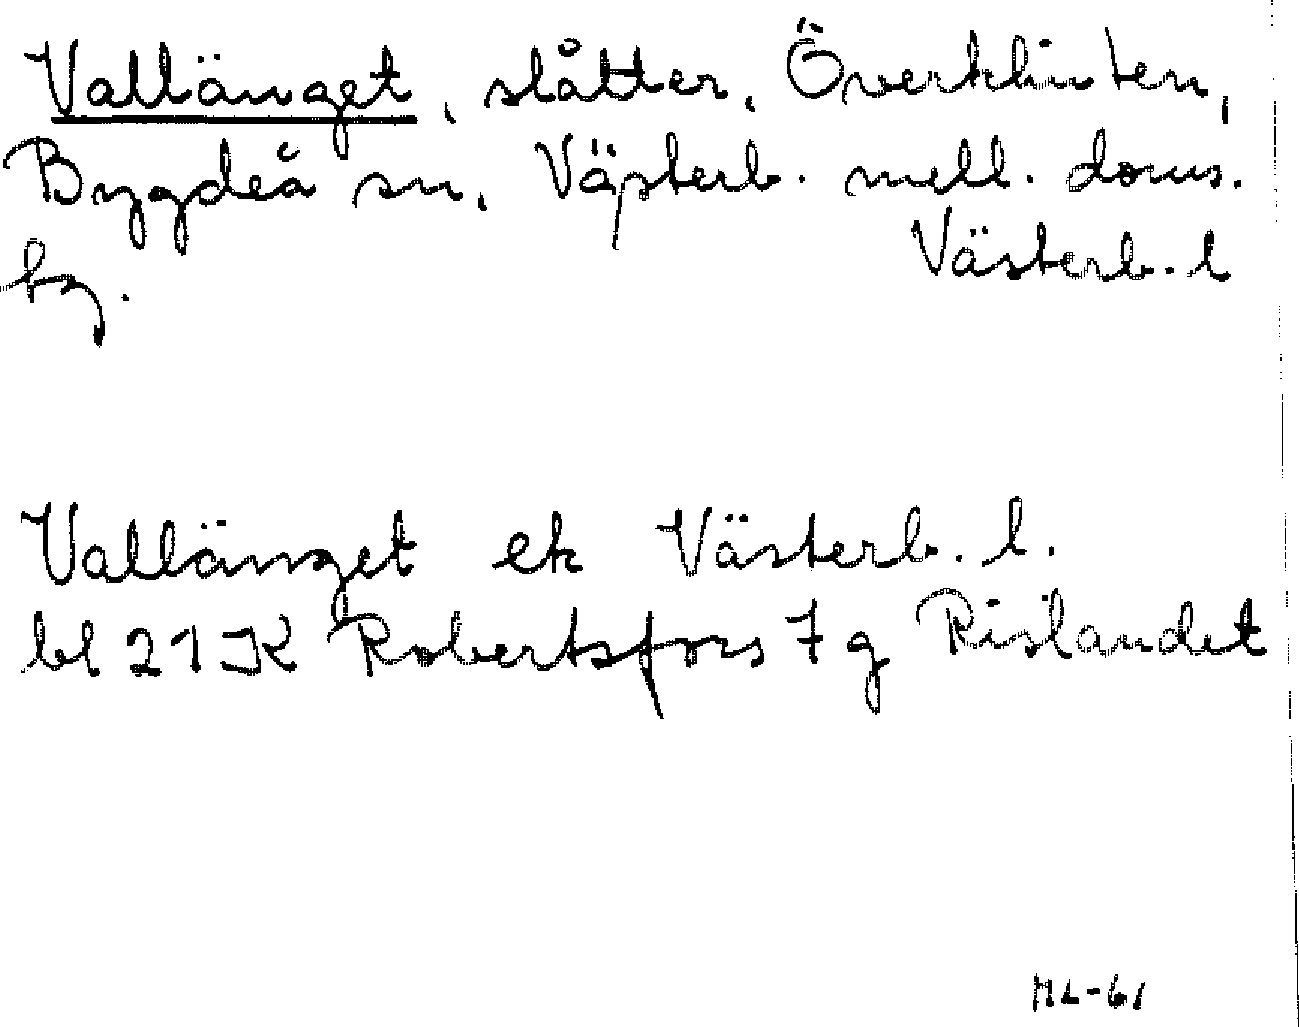 Vallänget, slåtter, Överklinten,
Bygdeå sn, Västerb. mell. doms.
Västerb. l
tg.
Vallänget ek Västerb. l.
bl 21K Robertsfors 7 g Rislandet
ML-61